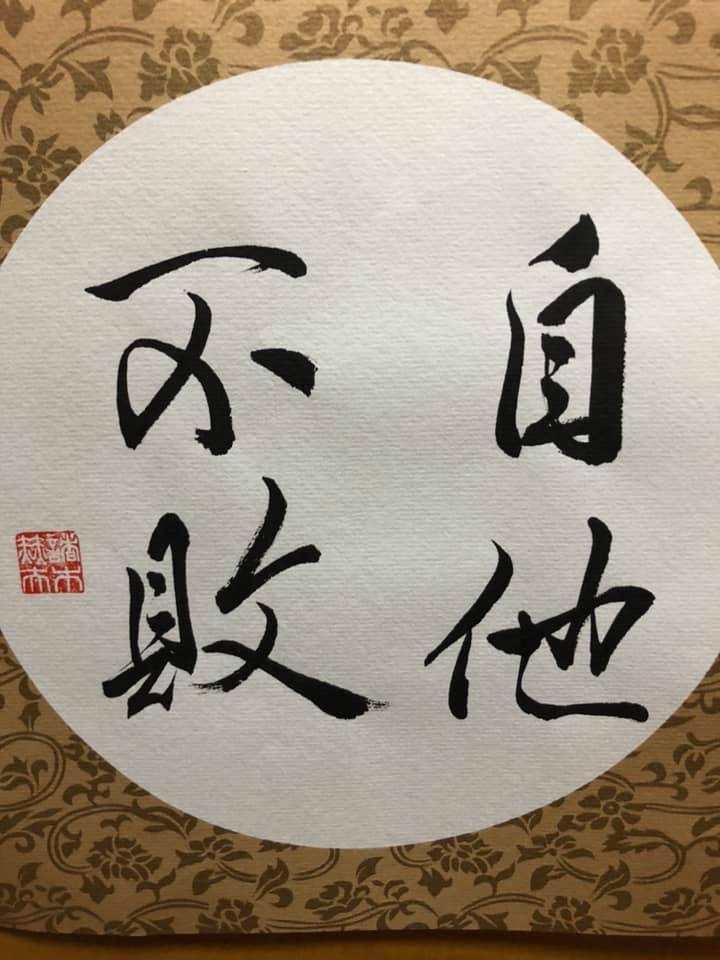 自他
不敗